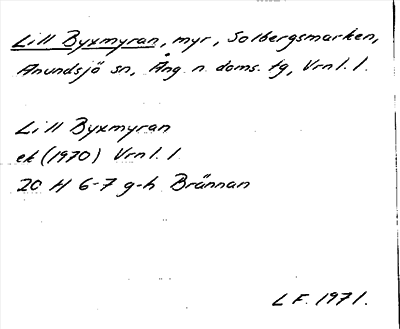 Lill Byxmyran, myr, Solbergsmarken,
Anundsjö sn, Ång. n. doms. tg, Vrnl. l.
Lill Byxmyran
ek (1970) Vrnl. l
20 H 6-7 g-h Brännan
L F. 1971.